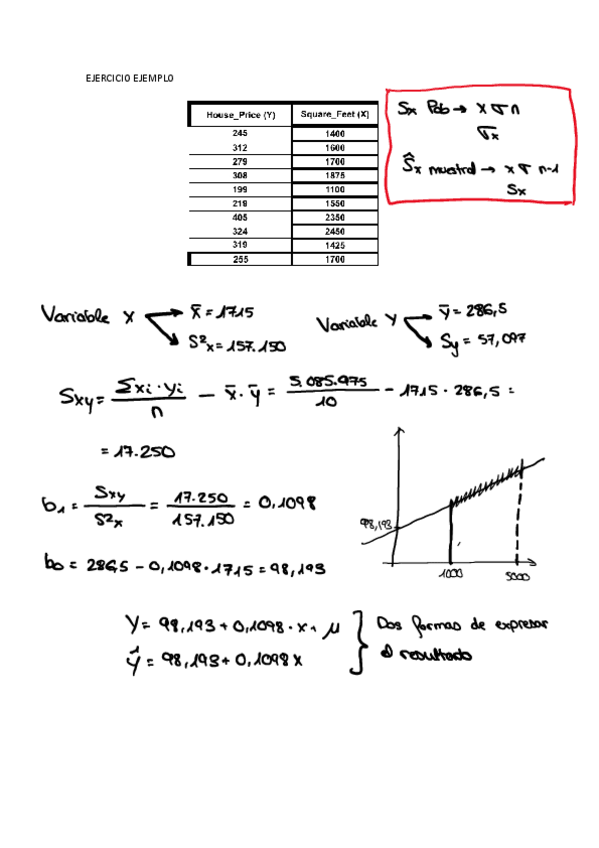 EJERCICIO EJEMPLO
House_Price (Y) Square_Feet (X)
245 1400
312 1600
279 1700
308 1875
199 1100
219 1550
405 2350
324 2450
319 1425
255 1700
Sx Pob → x σ n
σx
Ŝx muestral → x σ n-1
Sx
Variable X
x̄ = 1715
S²x = 157.150
Variable Y
ȳ = 286,5
Sy = 57,097
Sxy = Σxi·yi / n − x̄·ȳ = 5.085.975 / 10 − 1715 · 286,5 =
= 17.250
b1 = Sxy / S²x = 17.250 / 157.150 = 0,1098
98,193
1000 5000
b0 = 286,5 − 0,1098·1715 = 98,193
Y = 98,193 + 0,1098 · x + μ
ŷ = 98,193 + 0,1098 x
Dos formas de expresar
el resultado